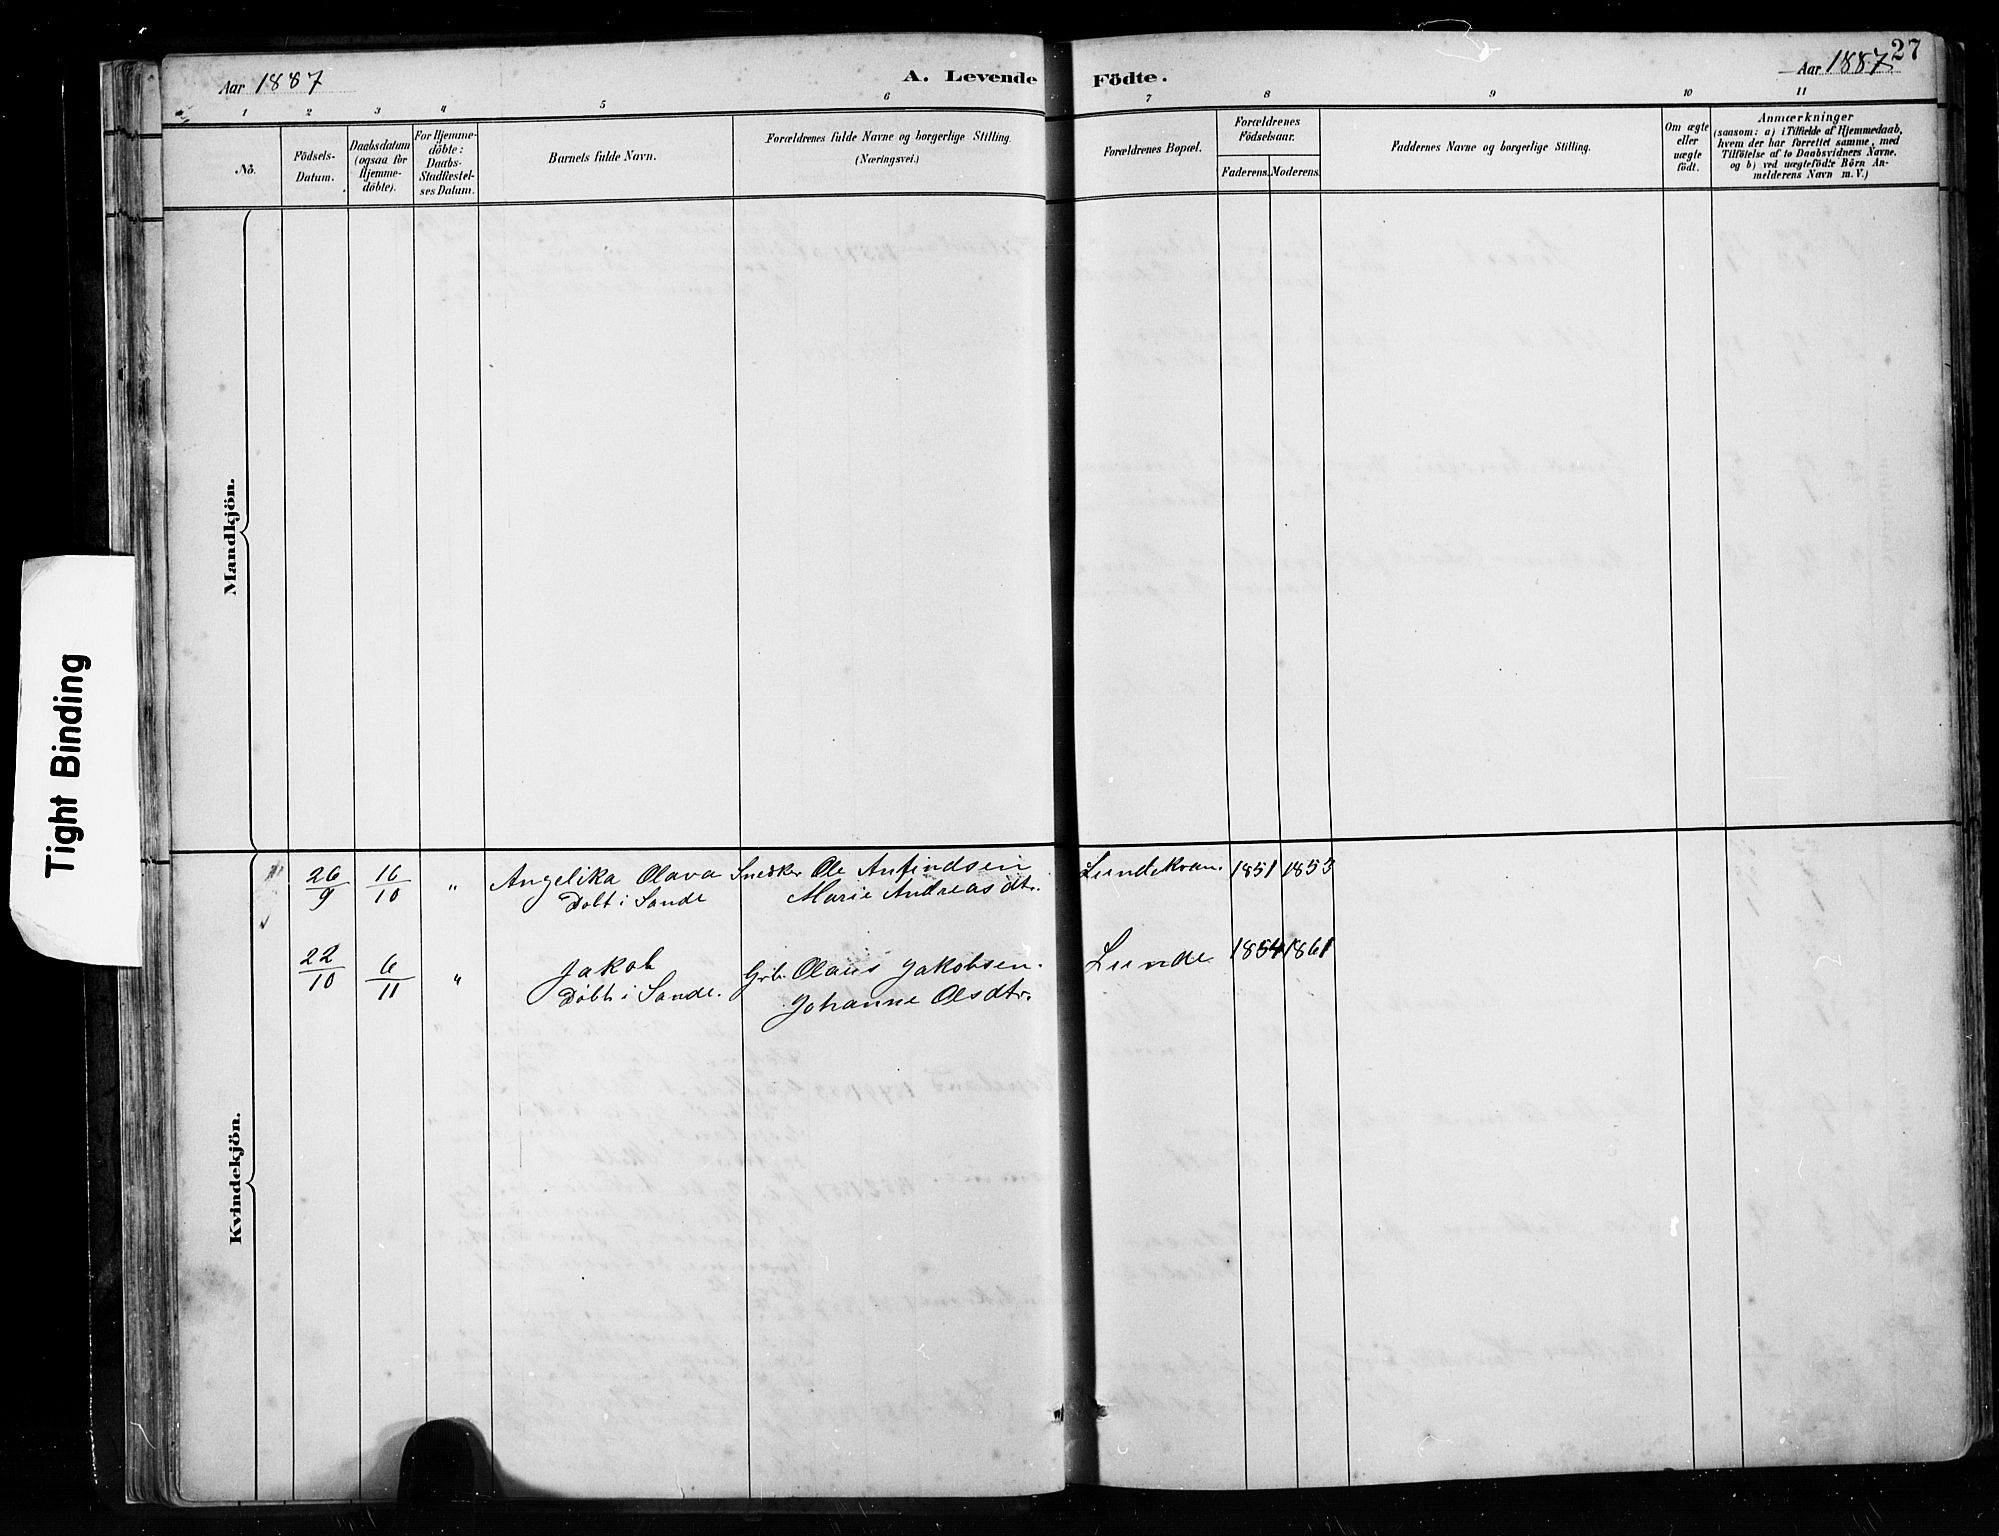 Aar 1887
A. Levende Födte.
Aar 1887
27
1 2 3 4 5 6 7 8 9 10 11
No.
Födsels-
Datum.
Daabsdatum
(ogsaa for
Hjemme-
döbte).
For Hjemme-
döbte:
Daabs-
Stadfæstel-
ses Datum.
Barnets fulde Navn.
Forældrenes fulde Navne og borgerlige Stilling.
(Næringsvei.)
Forældrenes Bopæl.
Forældrenes
Födselsaar.
Faderens. Moderens.
Faddernes Navne og borgerlige Stilling.
Om ægte
eller
uægte
födt.
Anmærkninger
(saasom: a) i Tilfælde af Hjemmedaab,
hvem der har forrettet samme, med
Tilföielse af to Daabsvidners Navne,
og b) ved uægtefödte Börn An-
melderens Navn m. V.)
Mandkjön.
Kvindekjön.
26/9 16/10 " Angelika Olava Snedker Ole Anfindsen Lundekvam 1851 1853
Døbt i Sande Marie Andreasdtr.
22/10 6/11 " Jakob Grb. Olaus Jakobsen. Lunde 1854 1861
Døbt i Sande. Johanne Olsdtr.
Tight Binding